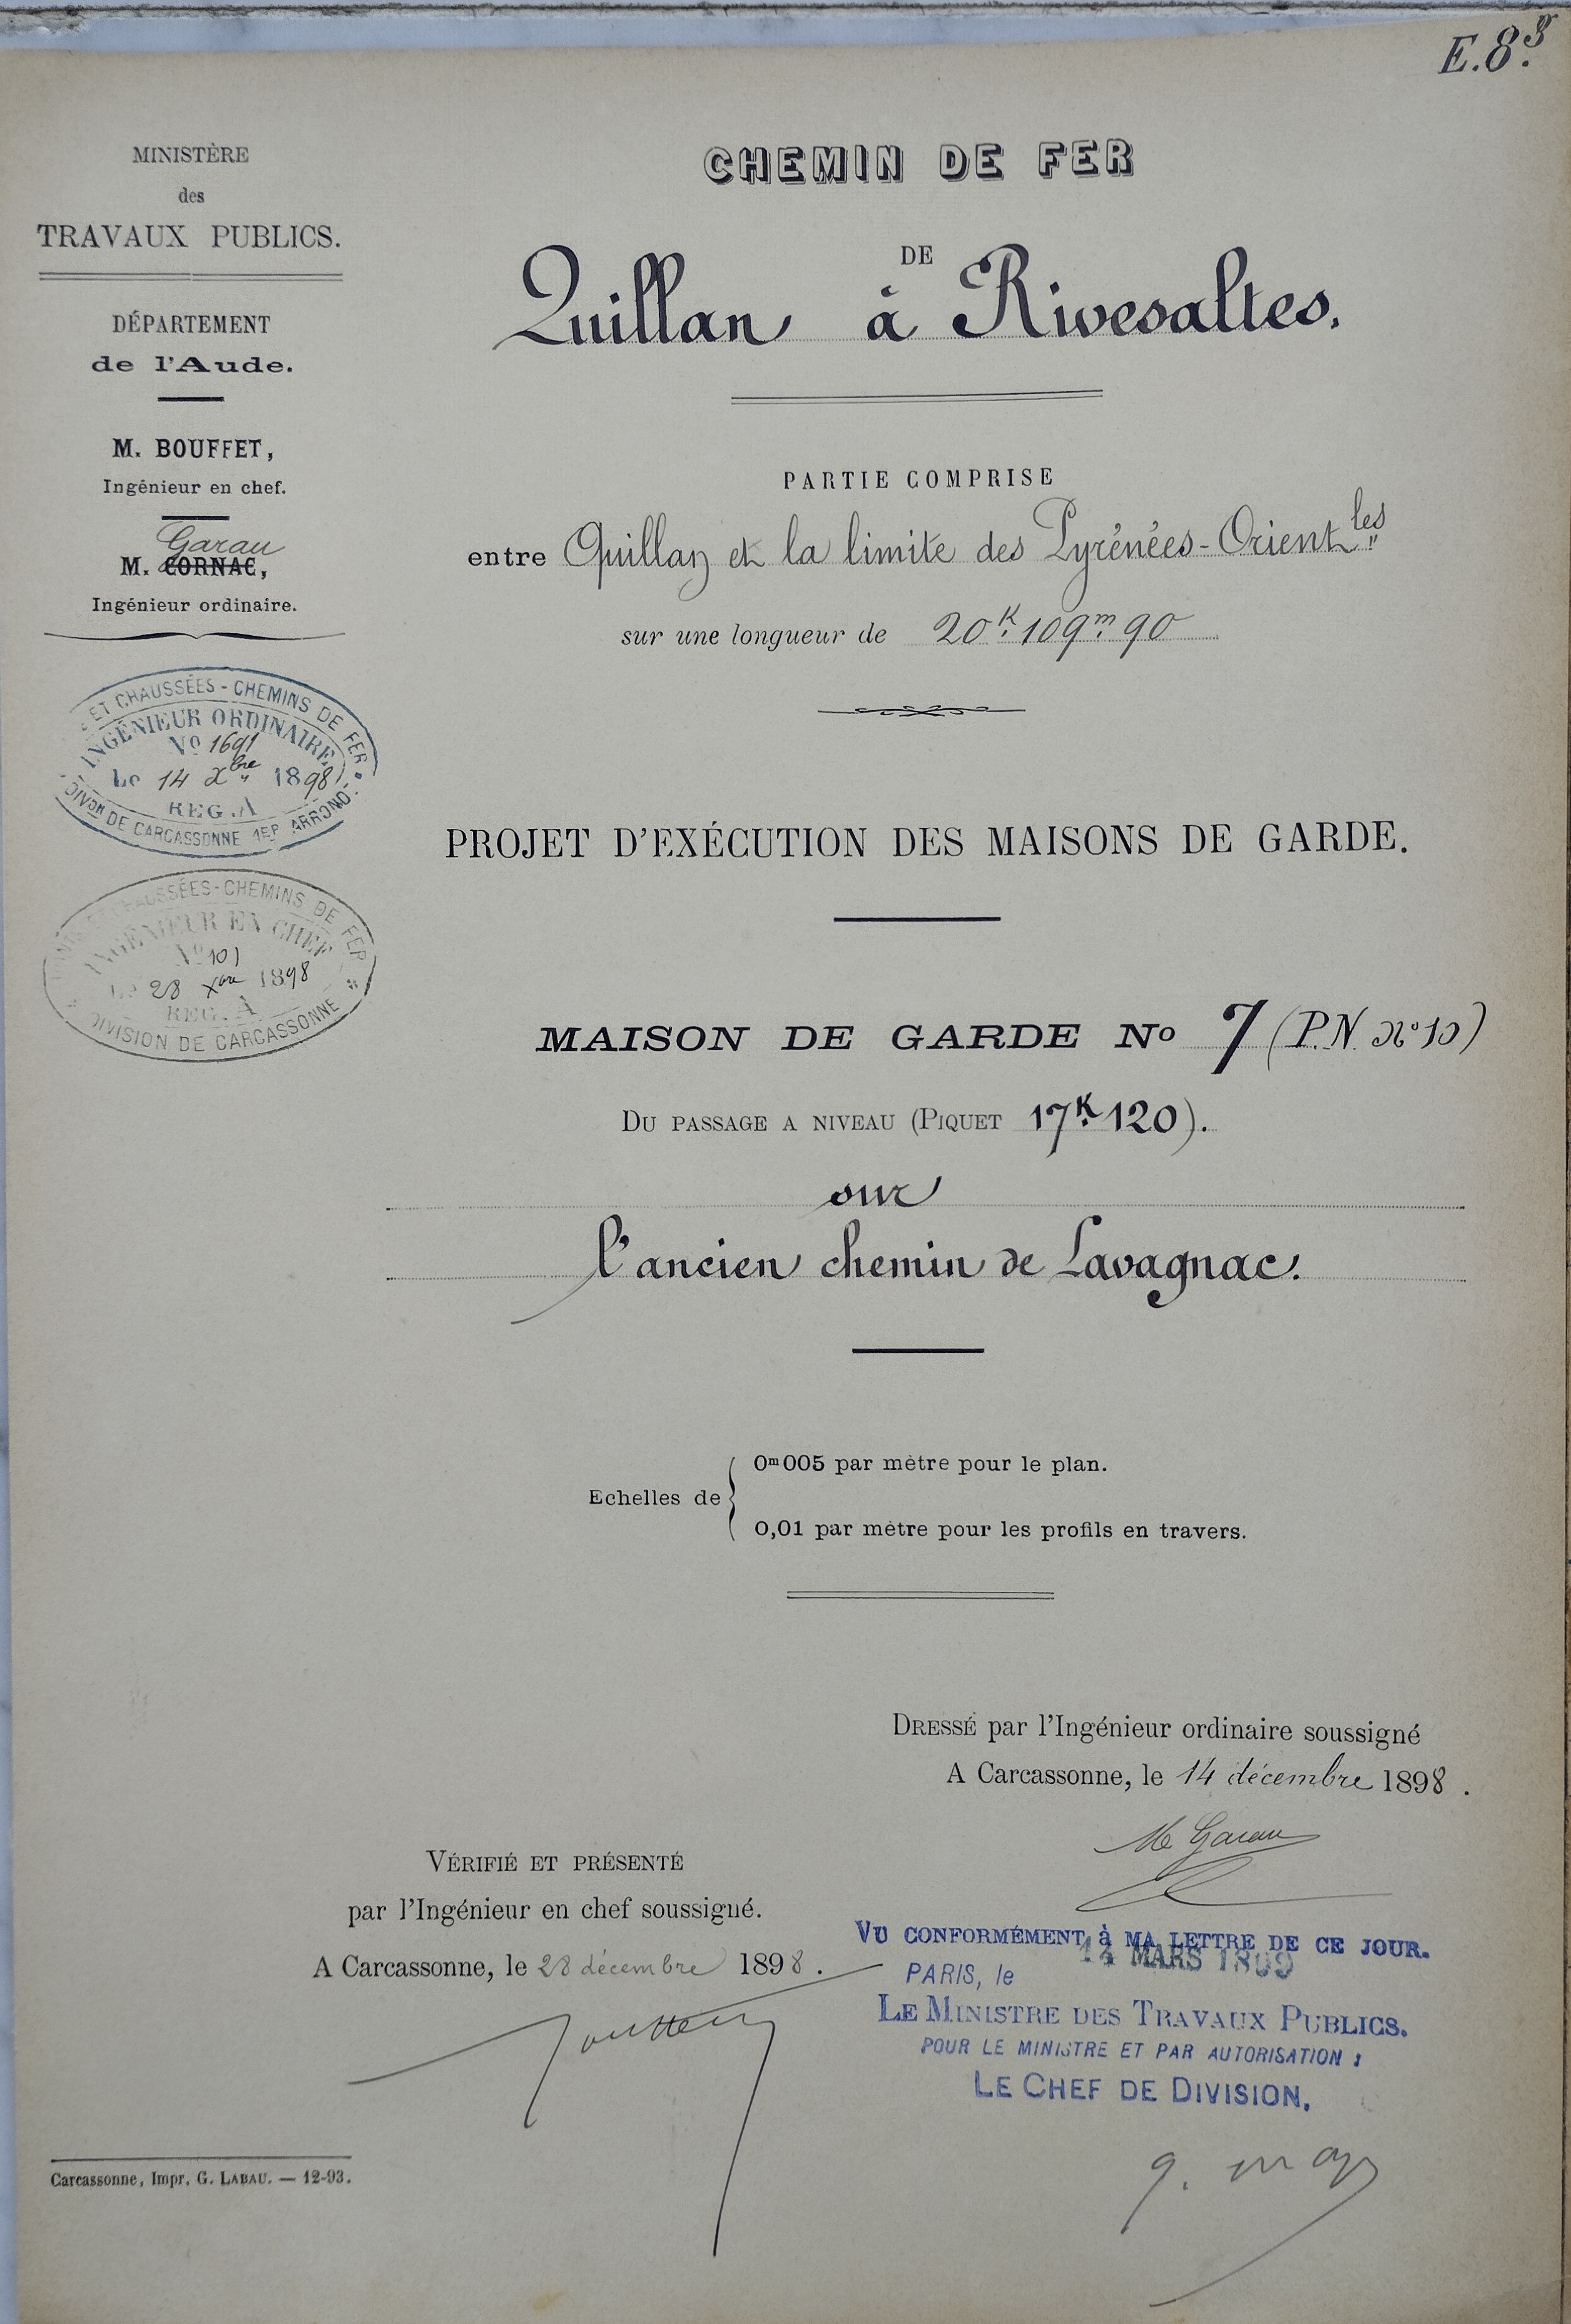 E.8.3
MINISTÈRE
des
TRAVAUX PUBLICS.
DÉPARTEMENT
de l'Aude.
M. BOUFFET,
Ingénieur en chef.
Garau
M. CORNAC,
Ingénieur ordinaire.
ET CHAUSSÉES - CHEMINS DE FER
INGÉNIEUR ORDINAIRE
No 1691
Le 14 Xbre 1898
REG. A
DIVON DE CARCASSONNE 1ER ARROND.
CHAUSSÉES-CHEMINS DE FER
INGÉNIEUR EN CHEF
No 101
Le 28 Xbre 1898
REG. A
DIVISION DE CARCASSONNE
CHEMIN DE FER
DE
Quillan à Rivesaltes.
PARTIE COMPRISE
entre Quillan et la limite des Pyrénées-Orientles
sur une longueur de 20K.109m.90
PROJET D'EXÉCUTION DES MAISONS DE GARDE.
MAISON DE GARDE No 7 (P.N. no 10)
DU PASSAGE A NIVEAU (PIQUET 17K.120).
sur
l'ancien chemin de Lavagnac.
Echelles de
0m005 par mètre pour le plan.
0,01 par mètre pour les profils en travers.
DRESSÉ par l'Ingénieur ordinaire soussigné
A Carcassonne, le 14 décembre 1898.
M Garau
VÉRIFIÉ ET PRÉSENTÉ
par l'Ingénieur en chef soussigné.
A Carcassonne, le 28 décembre 1898.
VU CONFORMÉMENT à MA LETTRE DE CE JOUR.
PARIS, le 14 MARS 1899
LE MINISTRE DES TRAVAUX PUBLICS.
POUR LE MINISTRE ET PAR AUTORISATION :
LE CHEF DE DIVISION.
Carcassonne, Impr. G. LABAU. — 12-93.